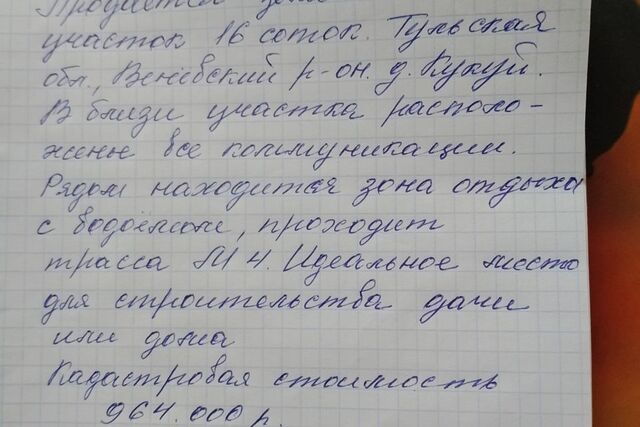 Продается
участок 16 соток. Тульская
обл., Веневский р-он. д. Кукуй.
В близи участка располо-
жены все коммуникации.
Рядом находится зона отдыха
с водоёмом, проходит
трасса М 4. Идеальное место
для строительства дачи
или дома
Кадастровая стоимость
964.000 р.